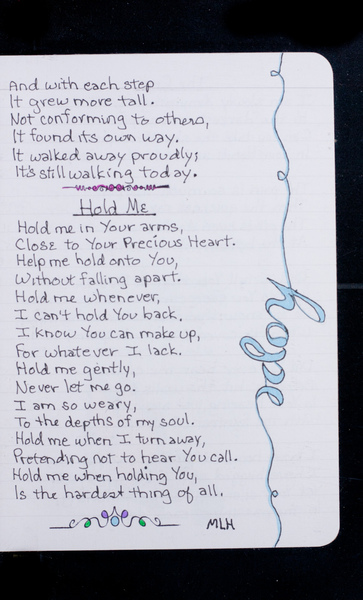 And with each step
It grew more tall.
Not conforming to others,
It found its own way.
It walked away proudly;
It's still walking today.
Hold Me
Hold me in Your arms,
Close to Your Precious Heart.
Help me hold onto You,
Without falling apart.
Hold me whenever,
I can't hold You back.
I know You can make up,
For whatever I lack.
Hold me gently,
Never let me go.
I am so weary,
To the depths of my soul.
Hold me when I turn away,
Pretending not to hear You call.
Hold me when holding You,
Is the hardest thing of all.
MLH
hope